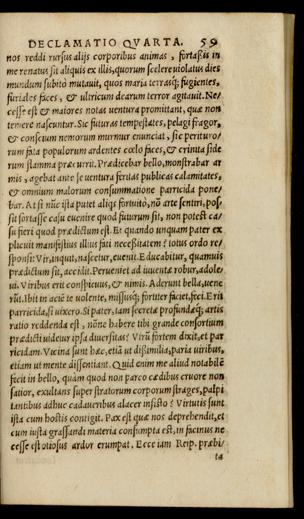 DECLAMATIO QVARTA. 59
nos reddi rursus alijs corporibus animas, fortaßis in
me renatus sit aliquis ex illis, quorum scelere uiolatus dies
mundum subitò mutauit, quos maria terrasq́; fugientes,
furiales faces, & ultricium dearum terror agitauit. Ne/
cesse est & maiores notas uentura promittant, quæ non
temerè nascuntur. Sic futuras tempestates, pelagi fragor,
& consetum nemorum murmur enunciat, sic perituro/
rum fata populorum ardentes cœlo faces, & crinita side
rum flamma præcurrit. Prædicebar bello, monstrabar ar
mis, agebat ante se uentura feritas publicas calamitates,
& omnium malorum consummatione parricida pone/
bar. At si nūc ista putet aliqs fortuitò, nō arte sentiri, pos/
sit fortasse casu euenire quod futurum sit, non potest ca/
su fieri quod prædictum est. Et quando unquam pater ex
plicuit manifestius illius fati necessitatem? totus ordo re/
sponsi: Vir, inquit, nascetur, euenit. Educabitur, quamuis
prædictum sit, accidit. Perueniet ad iuuentæ robur, adole/
ui. Viribus erit conspicuus, & nimis. Aderunt bella, uene
rūt. Ibit in aciē te uolente, missusq́; fortiter faciet, feci. Erit
parricida, si uixero. Si pater, tam secretæ profundæq́; artis
ratio reddenda est, nōne habere tibi grande consortium
prædicti uidetur ipsa diuersitas? Virū fortem dixit, et par
ricidam. Vicina sunt hæc, etiā ut dißimilia, paria uiribus,
etiam ut mente dissentiant. Quid enim me aliud notabilē
fecit in bello, quàm quod non parco cædibus cruore non
satior, exultans super stratorum corporum strages, palpi
tantibus adhuc cadaueribus alacer insisto? Virtutis sunt
ista cum hostis contigit. Pax est quæ nos deprehendit, et
cum iusta grassandi materia consumpta est, in facinus ne
cesse est otiosus ardor erumpat. Ecce iam Reip. præbi/
ta